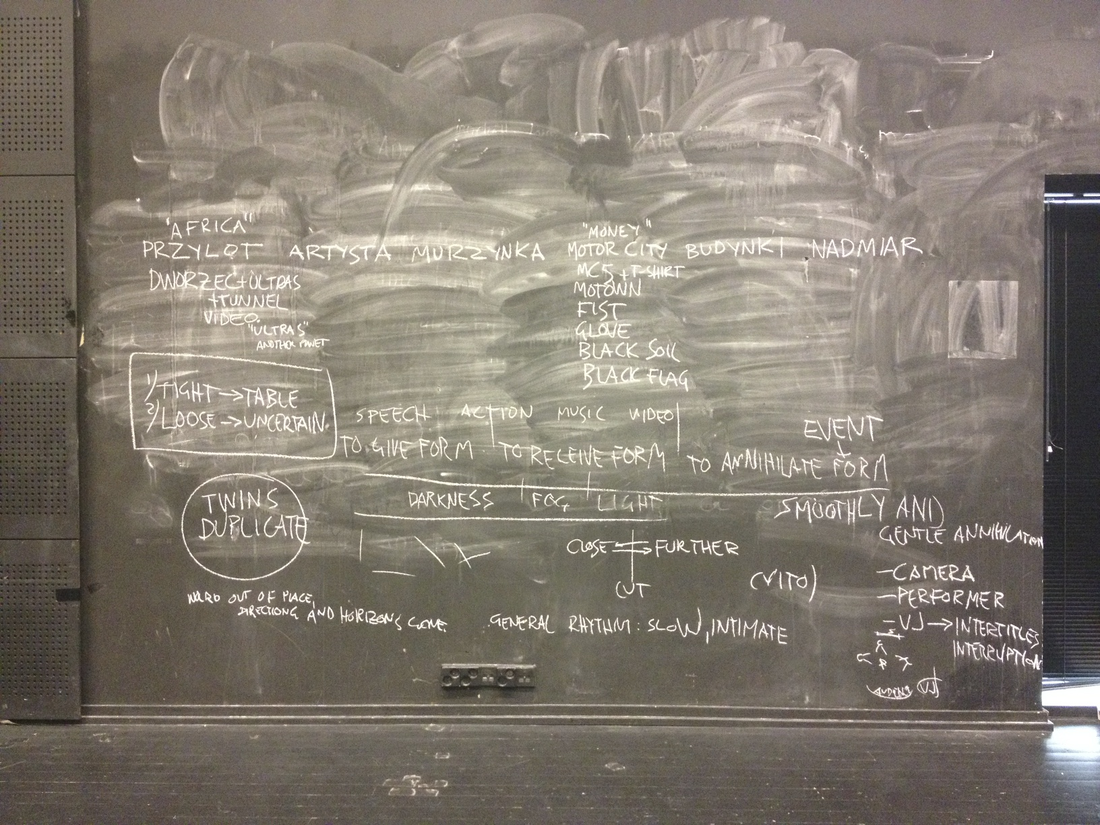 "AFRICA"
"MONEY"
PRZYLOT ARTYSTA MURZYNKA MOTOR CITY BUDYNKI NADMIAR
DWORZEC+ULTRAS
+TUNNEL
VIDEO
"ULTRAS"
ANOTHER PLANET
MC5 + T-SHIRT
MOTOWN
FIST
GLOVE
BLACK SOIL
BLACK FLAG
1) TIGHT → TABLE
2) LOOSE → UNCERTAIN
SPEECH ACTION MUSIC VIDEO
EVENT
TO GIVE FORM TO RECEIVE FORM TO ANNIHILATE FORM
DARKNESS FOG LIGHT
TWINS
DUPLICATE
SMOOTHLY AND
GENTLE ANNIHILATION
CLOSE FURTHER
CUT
(VITO)
-CAMERA
-PERFORMER
-VJ → INTERTITLES
INTERRUPTION
OUT OF PLACE,
DIRECTIONS AND HORIZONS
GENERAL RHYTHM: SLOW, INTIMATE
VJ